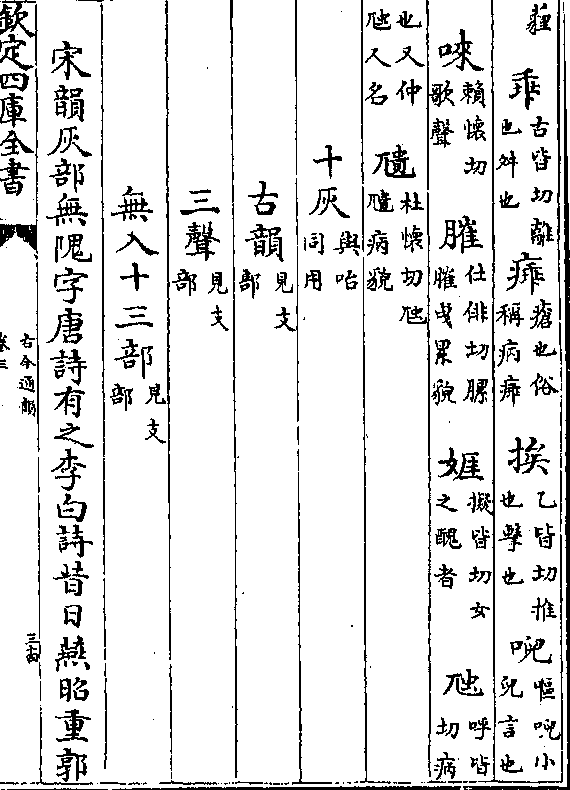 乖古皆切離也舛也㾩瘡也俗稱病㾩挨乙皆切推也擊也唲嘔唲小兒言也
唻賴懷切歌聲膗仕俳切腂膗曳累貌娾擬皆切女之醜者虺呼皆切病
也又仲虺人名尵杜懷切虺尵病貌
十灰與咍同用
古韻見支部
三聲見支部
無入十三部見支部
宋韻灰部無隗字唐詩有之李白詩昔日燕昭重郭
欽定四庫全書
古今通韻
卷三
三十四